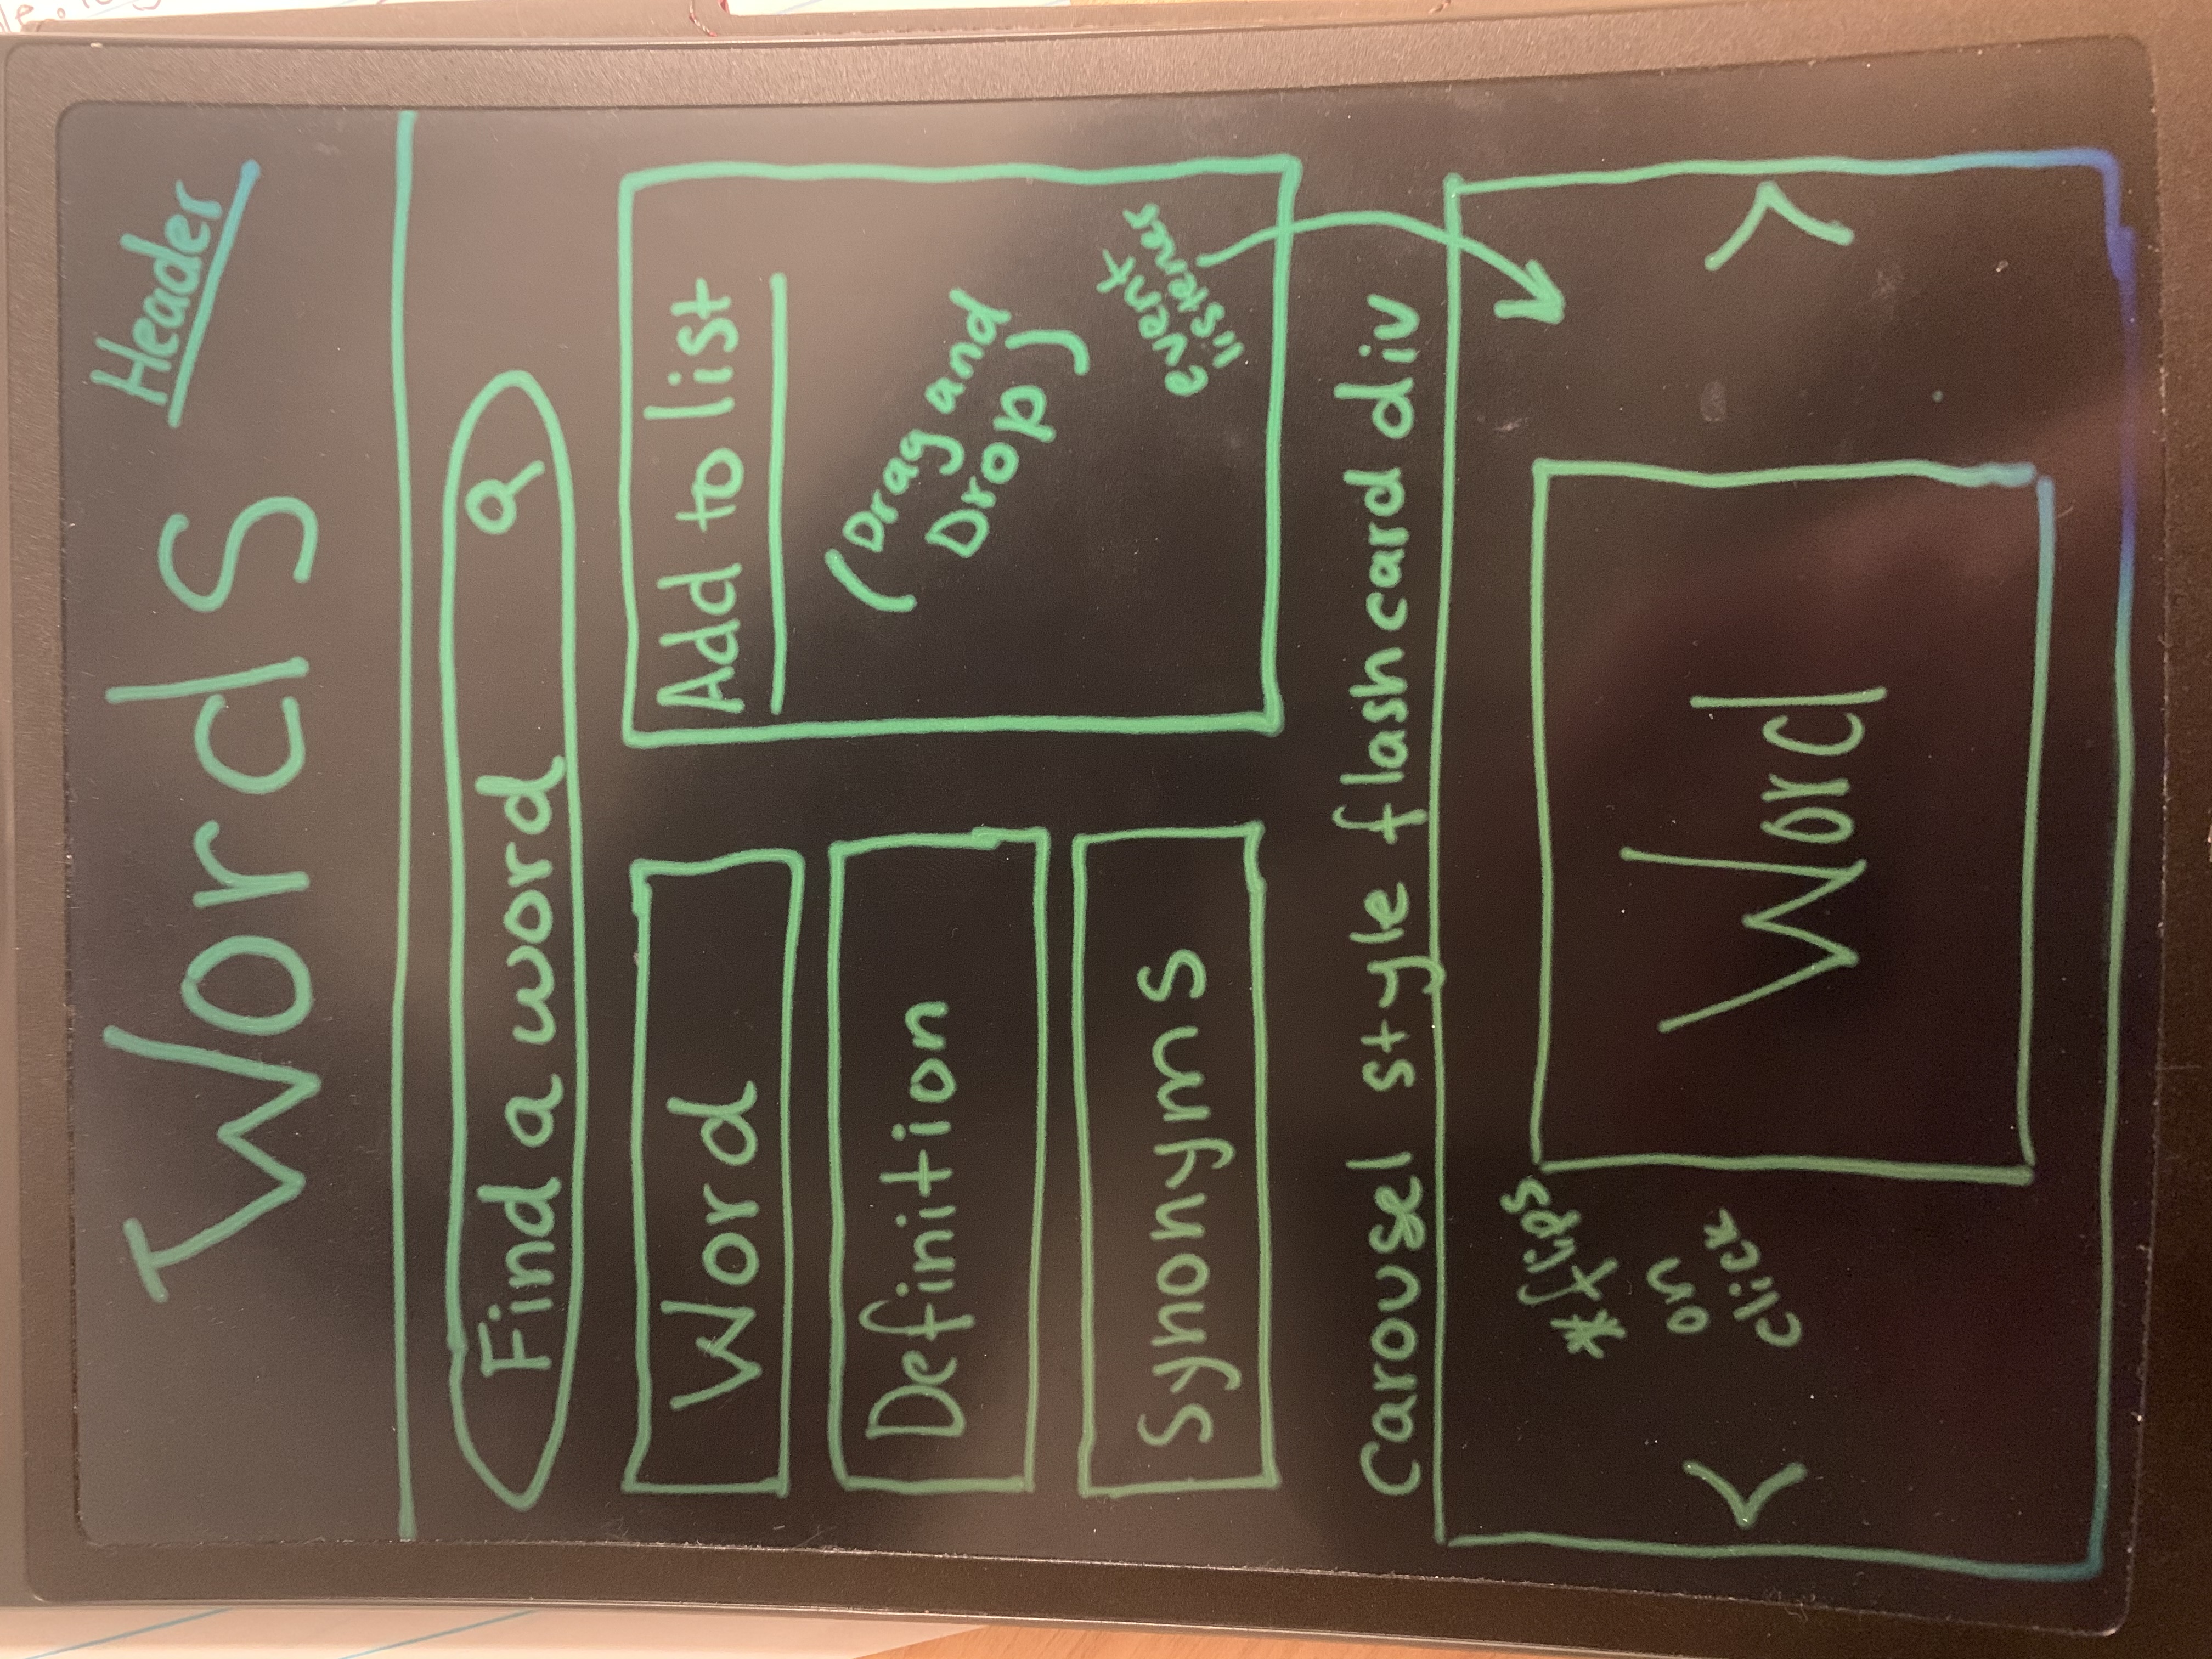 Words
Header
Find a word
Word
Definition
Synonyms
Add to list
(Drag and
Drop)
event
listener
Carousel style flashcard div
*flips
on
click
<
Word
>